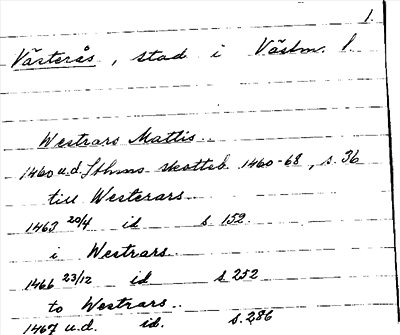 1.
Västerås, stad i Västm. l.
Westrars Mattis
1460 u.d. Sthms skotteb. 1460-68, s. 36
till Westerars
1463 20/4 id s 152
i Westrars
1466 23/12 id s 252
to Westrars
1467 u.d. id. s. 286